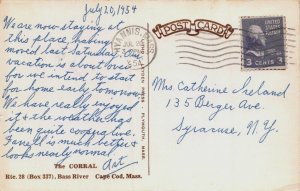 July 20, 1954
We are now staying at
this place, having
moved last Saturday. Our
vacation is about over
for we intend to start
for home early tomorrow.
We have really enjoyed
it & the weather has
been quite cooperative.
Farrell is much better &
looks nearly normal
Art
The CORRAL
Rte. 28 (Box 337), Bass River Cape Cod, Mass.
PLYMOUTH, MASS.
POST CARD
HYANNIS, MASS.
JUL 20
1954
3 CENTS 3
Mrs Catherine Ireland
135 Berger Ave.
Syracuse, N.Y.